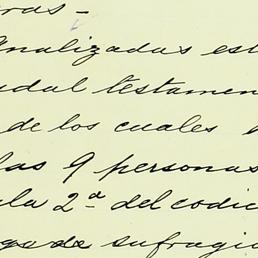 ras -
Analizadas est
udal testamen
de los cuales
las 9 personas
la 2ª del codic
go de sufragio